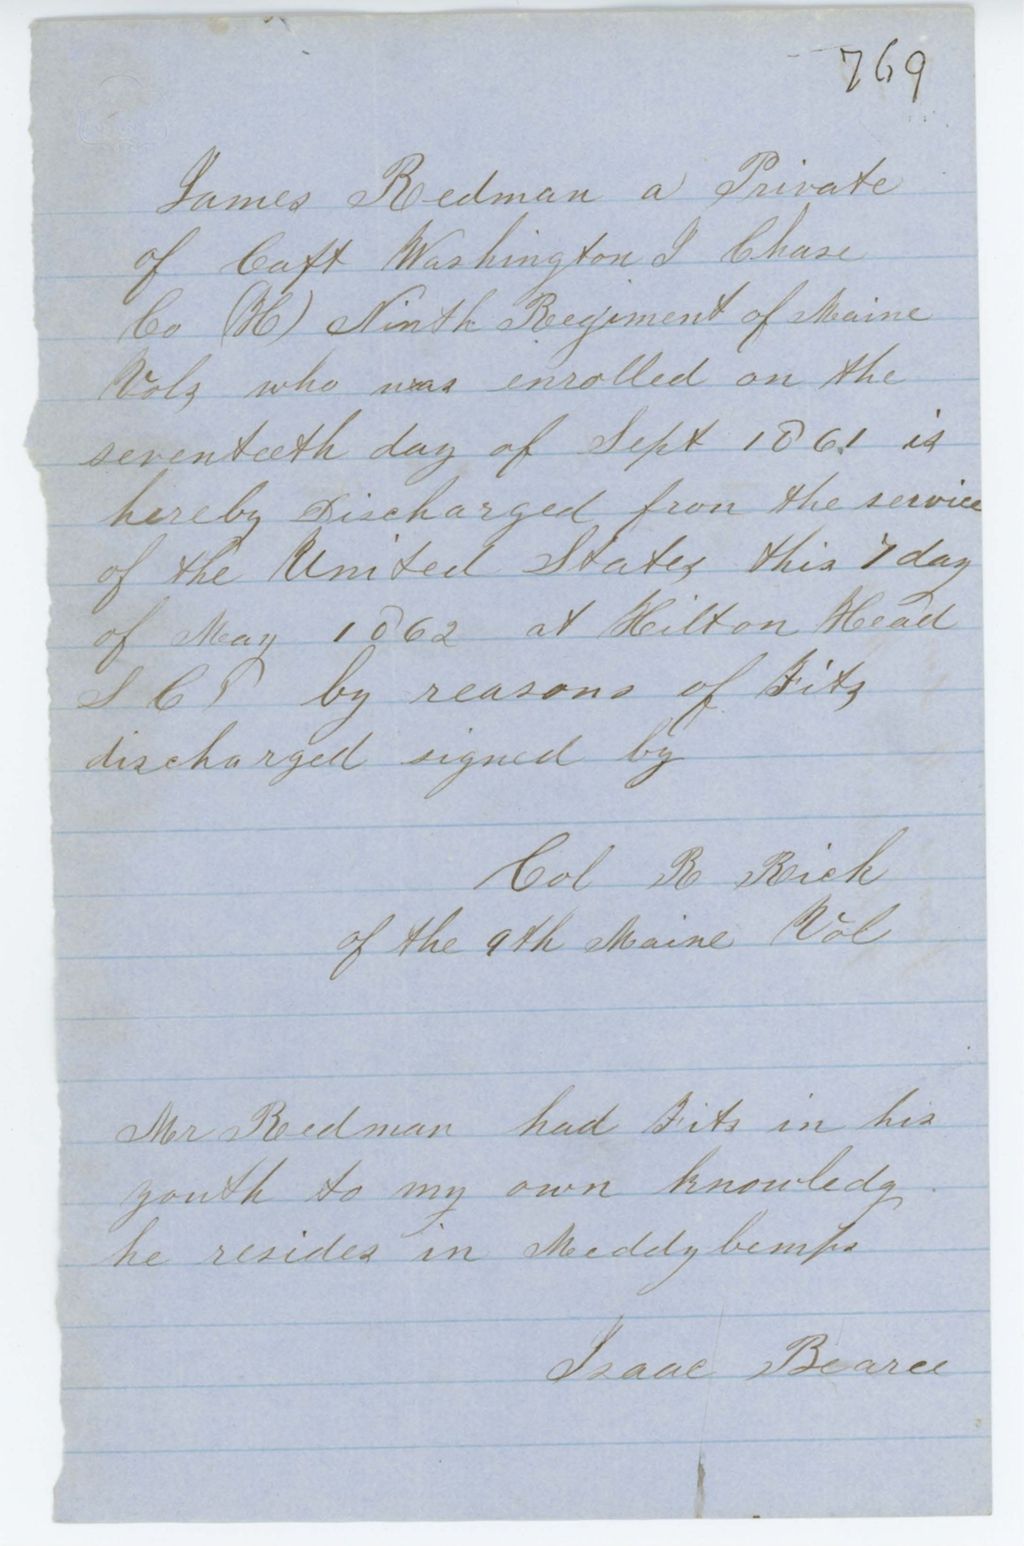 769
James Redman a Private
of Capt Washington I Chase
Co (H) Ninth Regiment of Maine
Vols who was enrolled on the
seventeeth day of Sept 1861 is
hereby Discharged from the service
of the United States this 7 day
of May 1862 at Hilton Head
S C by reasons of Fits
discharged signed by
Col R Rich
of the 9th Maine Vol
Mr Redman had Fits in his
youth to my own knowledg
he resides in Meddybemps
Isaac Bearce